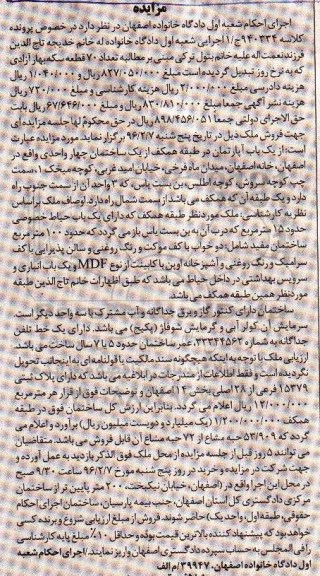 مزایده
اجرای احکام شعبه اول دادگاه خانواده اصفهان در نظر دارد در خصوص پرونده
کلاسه ۹۴۰۳۳۴/ اجرایی شعبه اول دادگاه خانواده له خانم خدیجه تاج الدین
فرزند نعمت اله علیه خانم بتول ترکی مبنی بر مطالبه تعداد ۷۰ قطعه سکه بهار آزادی
که به نرخ روز تبدیل گردیده است مبلغ ۸۲۷/۰۵۰/۰۰۰ ریال و ۱/۰۴۰/۰۰۰ ریال
هزینه دادرسی مبلغ ۲/۰۰۰/۰۰۰ ریال هزینه کارشناسی و مبلغ ۷۲۰/۰۰۰ ریال
هزینه نشر آگهی جمعا مبلغ ۸۳۰/۸۱۰/۰۰۰ ریال و مبلغ ۶۷/۶۴۶/۰۰۰ ریال بابت
حق الاجرای دولتی جمعا ۸۹۸/۴۵۶/۰۵۱ ریال در حق محکوم لها جلسه مزایده ای
جهت فروش ملک ذیل در تاریخ پنج شنبه ۹۶/۲/۷ برگزار نماید. مورد مزایده عبارت
است از: یک باب آپارتمان در طبقه همکف از یک ساختمان چهار واحدی واقع در
اصفهان، خانه اصفهان، میدان ماه فرخی، خیابان امید غربی، کوچه میخک ۱، سمت
چپ کوچه سروش، کوچه اطلس، بن بست یاس، که ۳ واحد آن از سمت جنوب راه
دارد و یک طبقه آن که همکف می باشد از سمت شمال راه دارد. اوصاف ملک بر اساس
نظریه کارشناسی: ملک مورد نظر طبقه همکف که دارای یک باب حیاط خصوصی
حدود ۱۵ متر مربع که درب آن به بن بست یاس باز می گردد که حدود ۱۰۰ متر مربع
ساختمان مفید شامل: دو خواب با کف موکت و رنگ روغنی و سالن پذیرایی با کف
سرامیک و رنگ روغنی و آشپزخانه اوپن با کابینت از نوع MDF و یک باب انباری و
سرویس بهداشتی در داخل حیاط می باشد که طبق اظهارات خانم تاج الدین طبقه
مورد نظر همین طبقه همکف می باشد.
ساختمان دارای کنتور گاز و برق جداگانه و آب مشترک با سه واحد دیگر است.
سرمایش آن کولر آبی و گرمایش شوفاژ (پکیج) می باشد. دارای یک خط تلفن
جداگانه به شماره ۳۳۳۴۴۵۶۳، عمر ساختمان حدود ۵ یا ۷ سال ساخت می باشد.
ارزیابی ملک با توجه به اینکه هیچگونه سند مالکیت یا قولنامه ای به اینجانب تحویل
نگردیده است و فقط اطلاعات از مندرجات در ابلاغیه می باشد که دارای پلاک ثبتی
۱۵۴۷۹ فرعی از ۲۸ اصلی بخش ۱۴ اصفهان و توضیحات فوق از قرار هر متر مربع
۱۲/۰۰۰/۰۰۰ ریال اعلام می گردد. بنابراین ارزش کل ساختمان فوق در طبقه
همکف ۱/۲۰۰/۰۰۰/۰۰۰ (یک میلیارد و دویست میلیون ریال) برآورد و اعلام می
گردد که ۵۳/۹۰۹ حبه مشاع از ۷۲ حبه مشاع آن قابل فروش می باشد. متقاضیان
می توانند ۵ روز قبل از جلسه مزایده از محل ملک فوق الذکر بازدید به عمل آورده و
جهت شرکت در مزایده و خرید در روز پنج شنبه مورخ ۹۶/۲/۷ ساعت ۹/۳۰ صبح
در محل این اجرا واقع در (اصفهان، خیابان نیکبخت، ۲۰۰ متر پایین تر از ساختمان
مرکزی دادگستری کل استان اصفهان، جنب بیمه پارسیان، ساختمان اجرای احکام
حقوقی، طبقه اول، واحد یک) حاضر شوند. فروش از مبلغ ارزیابی شروع و برنده کسی
خواهد بود که پیشنهاد دهنده بالاترین قیمت بوده و حداقل ۱۰٪ مبلغ پایه کارشناسی
را فی المجلس به حساب سپرده دادگستری اصفهان واریز نمایند./اجرای احکام شعبه
اول دادگاه خانواده اصفهان. ۳۹۹۴۷/م الف